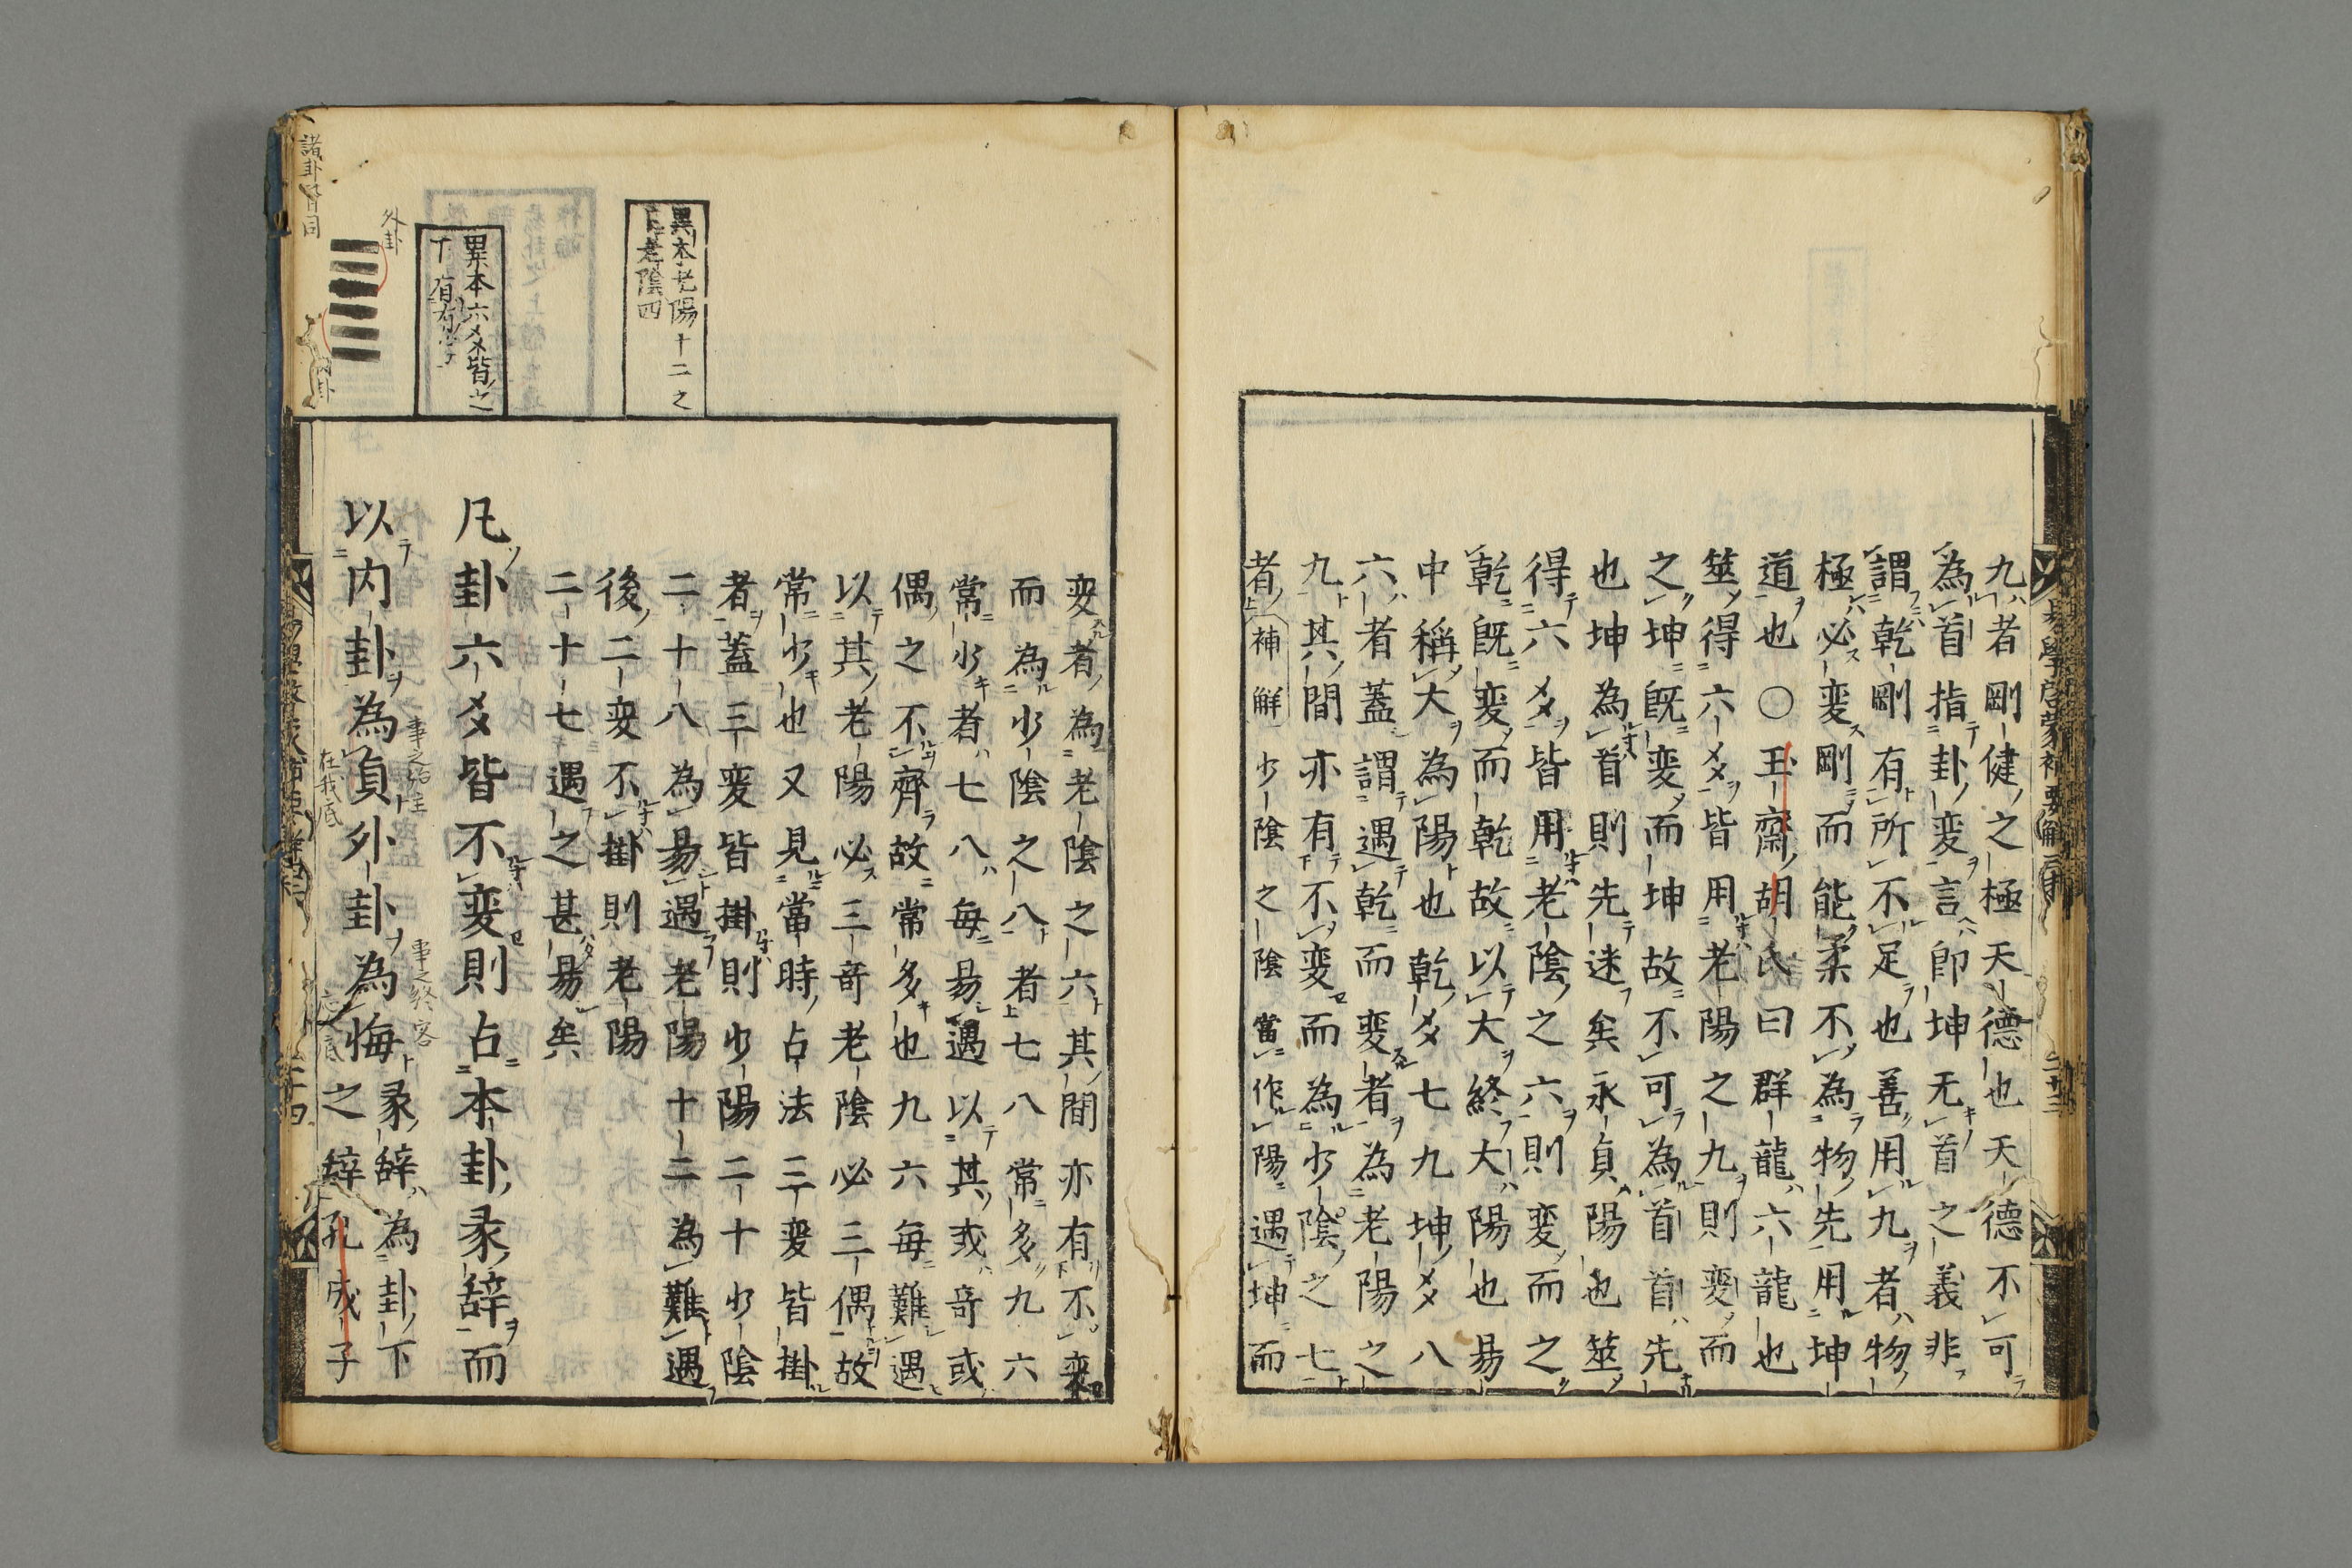 九者剛健之極天德也天德不可
為首指卦變言即坤无首之義非
謂乾剛有所不足也善用九者物
極必変剛而能柔不為物先用坤
道也○玉齋胡氏曰群龍六龍也
筮得六爻皆用老陽之九則変而
之坤既変而坤故不可為首首先
也坤為首則先迷矣永貞陽也筮
得六爻皆用老陰之六則変而之
乾既変而乾故以大終大陽也易
中稱大為陽也乾爻七九坤爻八
六者蓋謂遇乾而変者為老陽之
九其間亦有不変而為少陰之七
者補解少陰之陰當作陽遇坤而
変者為老陰之六其間亦有不変
而為少陰之八者七八常多九六
常少者七八每易遇以其或奇或
偶之不齊故常多也九六每難遇
以其老陽必三奇老陰必三偶故
常少也又見當時占法三変皆掛
者蓋三変皆掛則少陽二十少陰
二十八為易遇老陽十二為難遇
後二変不掛則老陽
二十七遇之甚易矣
凡卦六爻皆不変則占本卦彖辭而
以内卦為貞外卦為悔彖辭為卦下
之辭孔成子
異本老陽十二之
下老陰四
異本六爻皆之
下
外卦
諸卦皆同
事之始主
在我底
事之終客
易學啓蒙補要解
二十三
二十四